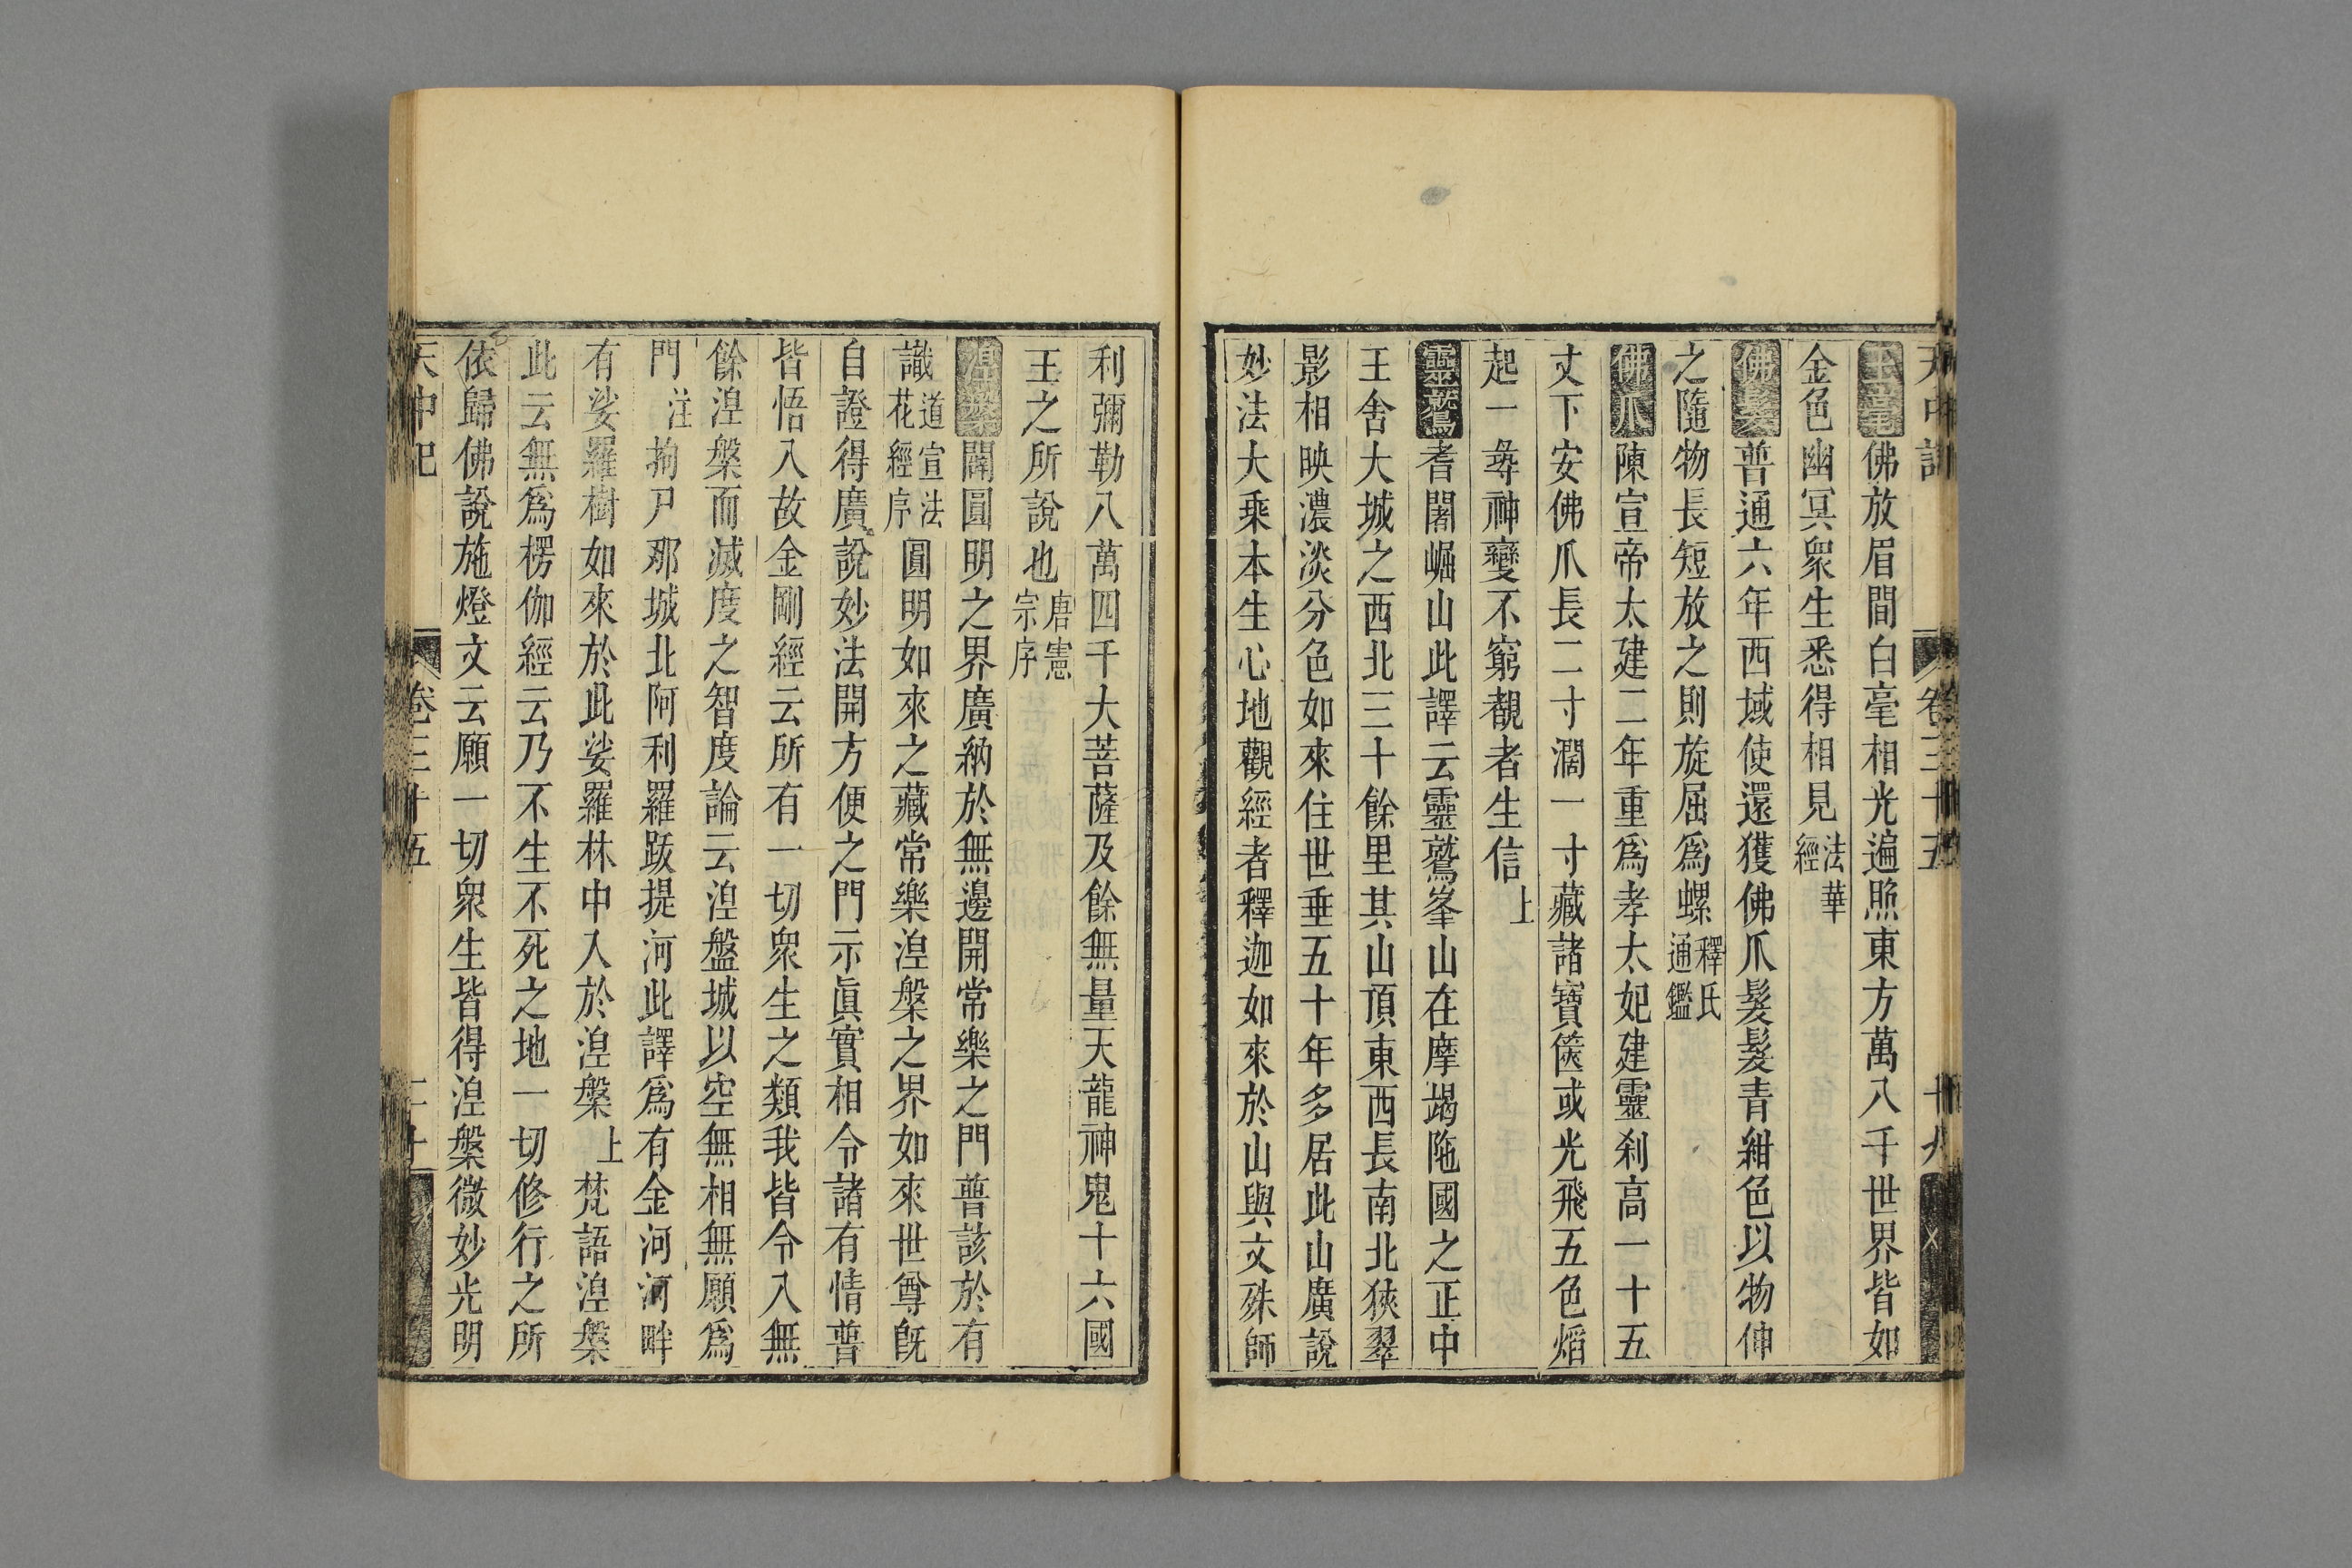 天中記 卷三十五 十九
玉毫佛放眉間白毫相光遍照東方萬八千世界皆如
金色幽冥衆生悉得相見法華經
佛髮普通六年西域使還獲佛爪髮髮青紺色以物伸
之隨物長短放之則旋屈爲螺釋氏通鑑
佛爪陳宣帝太建二年重爲孝太妃建靈刹高一十五
丈下安佛爪長二寸濶一寸藏諸寶篋或光飛五色熖
起一尋神變不窮覩者生信上
靈鷲耆闍崛山此譯云靈鷲峯山在摩竭陁國之正中
王舍大城之西北三十餘里其山頂東西長南北狹翠
影相映濃淡分色如來住世垂五十年多居此山廣說
妙法大乘本生心地觀經者釋迦如來於山與文殊師
利彌勒八萬四千大菩薩及餘無量天龍神鬼十六國
王之所說也唐憲宗序
湼槃闡圓明之界廣納於無邊開常樂之門普該於有
識道宣法花經序圓明如來之藏常樂湼槃之界如來世尊旣
自證得廣說妙法開方便之門示眞實相令諸有情普
皆悟入故金剛經云所有一切衆生之類我皆令入無
餘湼槃而滅度之智度論云湼盤城以空無相無願爲
門注拘尸那城北阿利羅跋提河此譯爲有金河河畔
有娑羅樹如來於此娑羅林中入於湼槃上梵語湼槃
此云無爲楞伽經云乃不生不死之地一切修行之所
依歸佛說施燈文云願一切衆生皆得湼槃微妙光明
天中記 卷三十五 二十